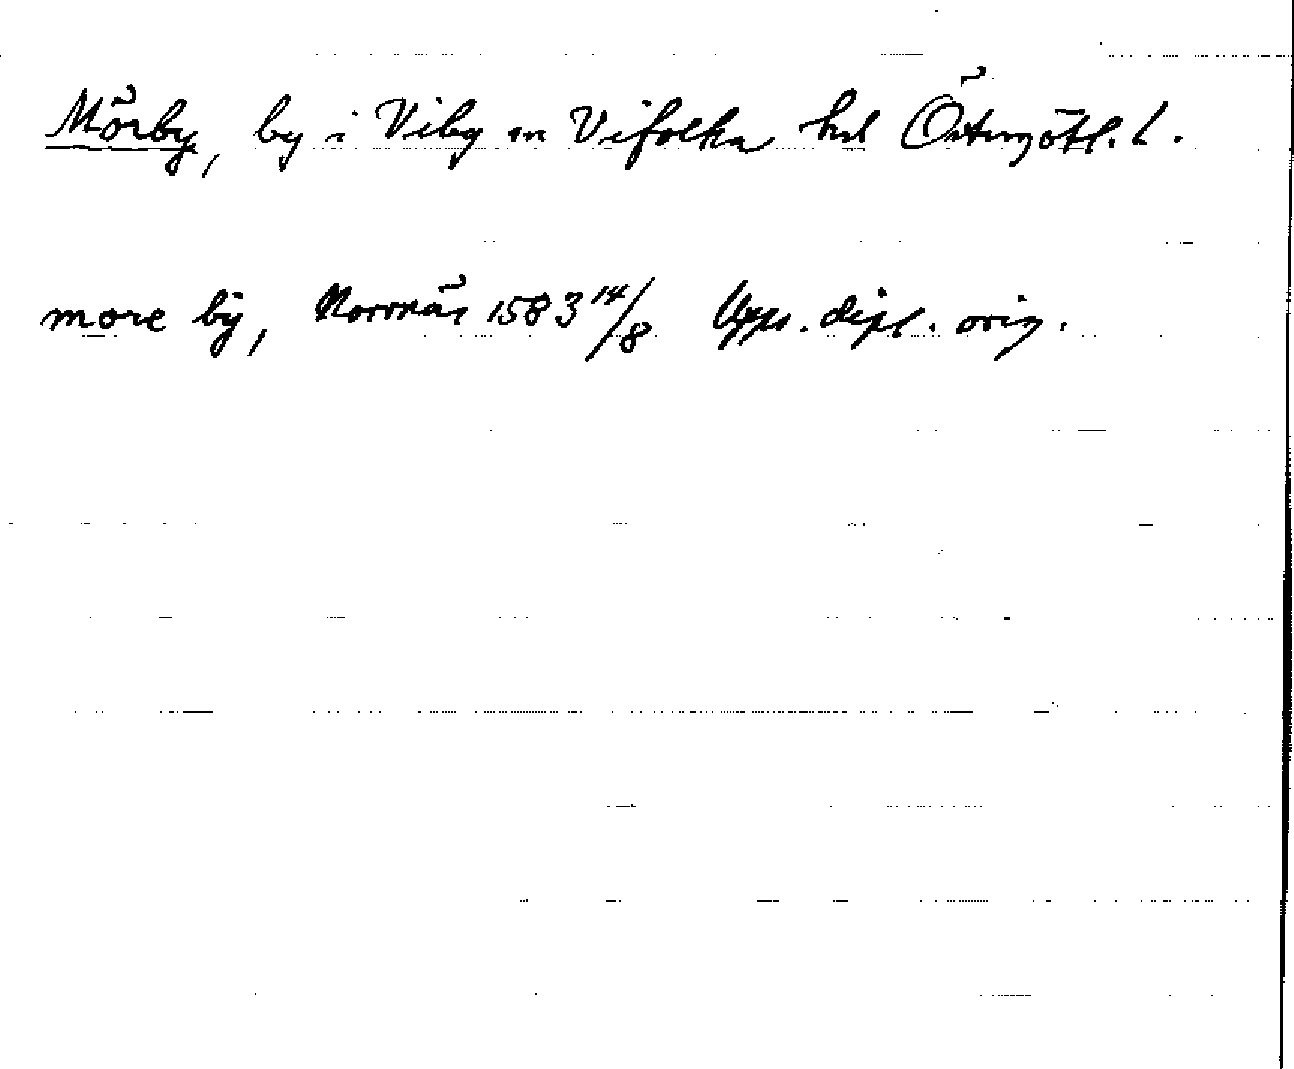 Mörby, by i Viby sn Vifolka hd Östergötl. L.
more bÿ, Norrnäs 1583 14/8 Upps. dipl. orig.